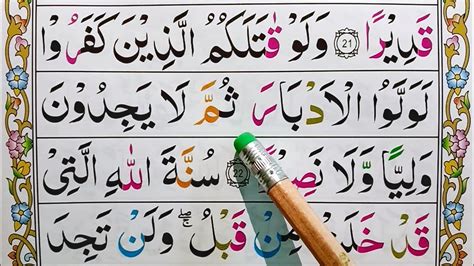 قَدِيْرًا ﴿21﴾ وَلَوْ قٰتَلَكُمُ الَّذِيْنَ كَفَرُوْا
لَوَلَّوُا الْاَدْبَارَ ثُمَّ لَا يَجِدُوْنَ
وَلِيًّا وَّلَا نَصِيْرًا ﴿22﴾ سُنَّةَ اللّٰهِ الَّتِيْ
قَدْ خَلَتْ مِنْ قَبْلُ ۖ وَلَنْ تَجِدَ